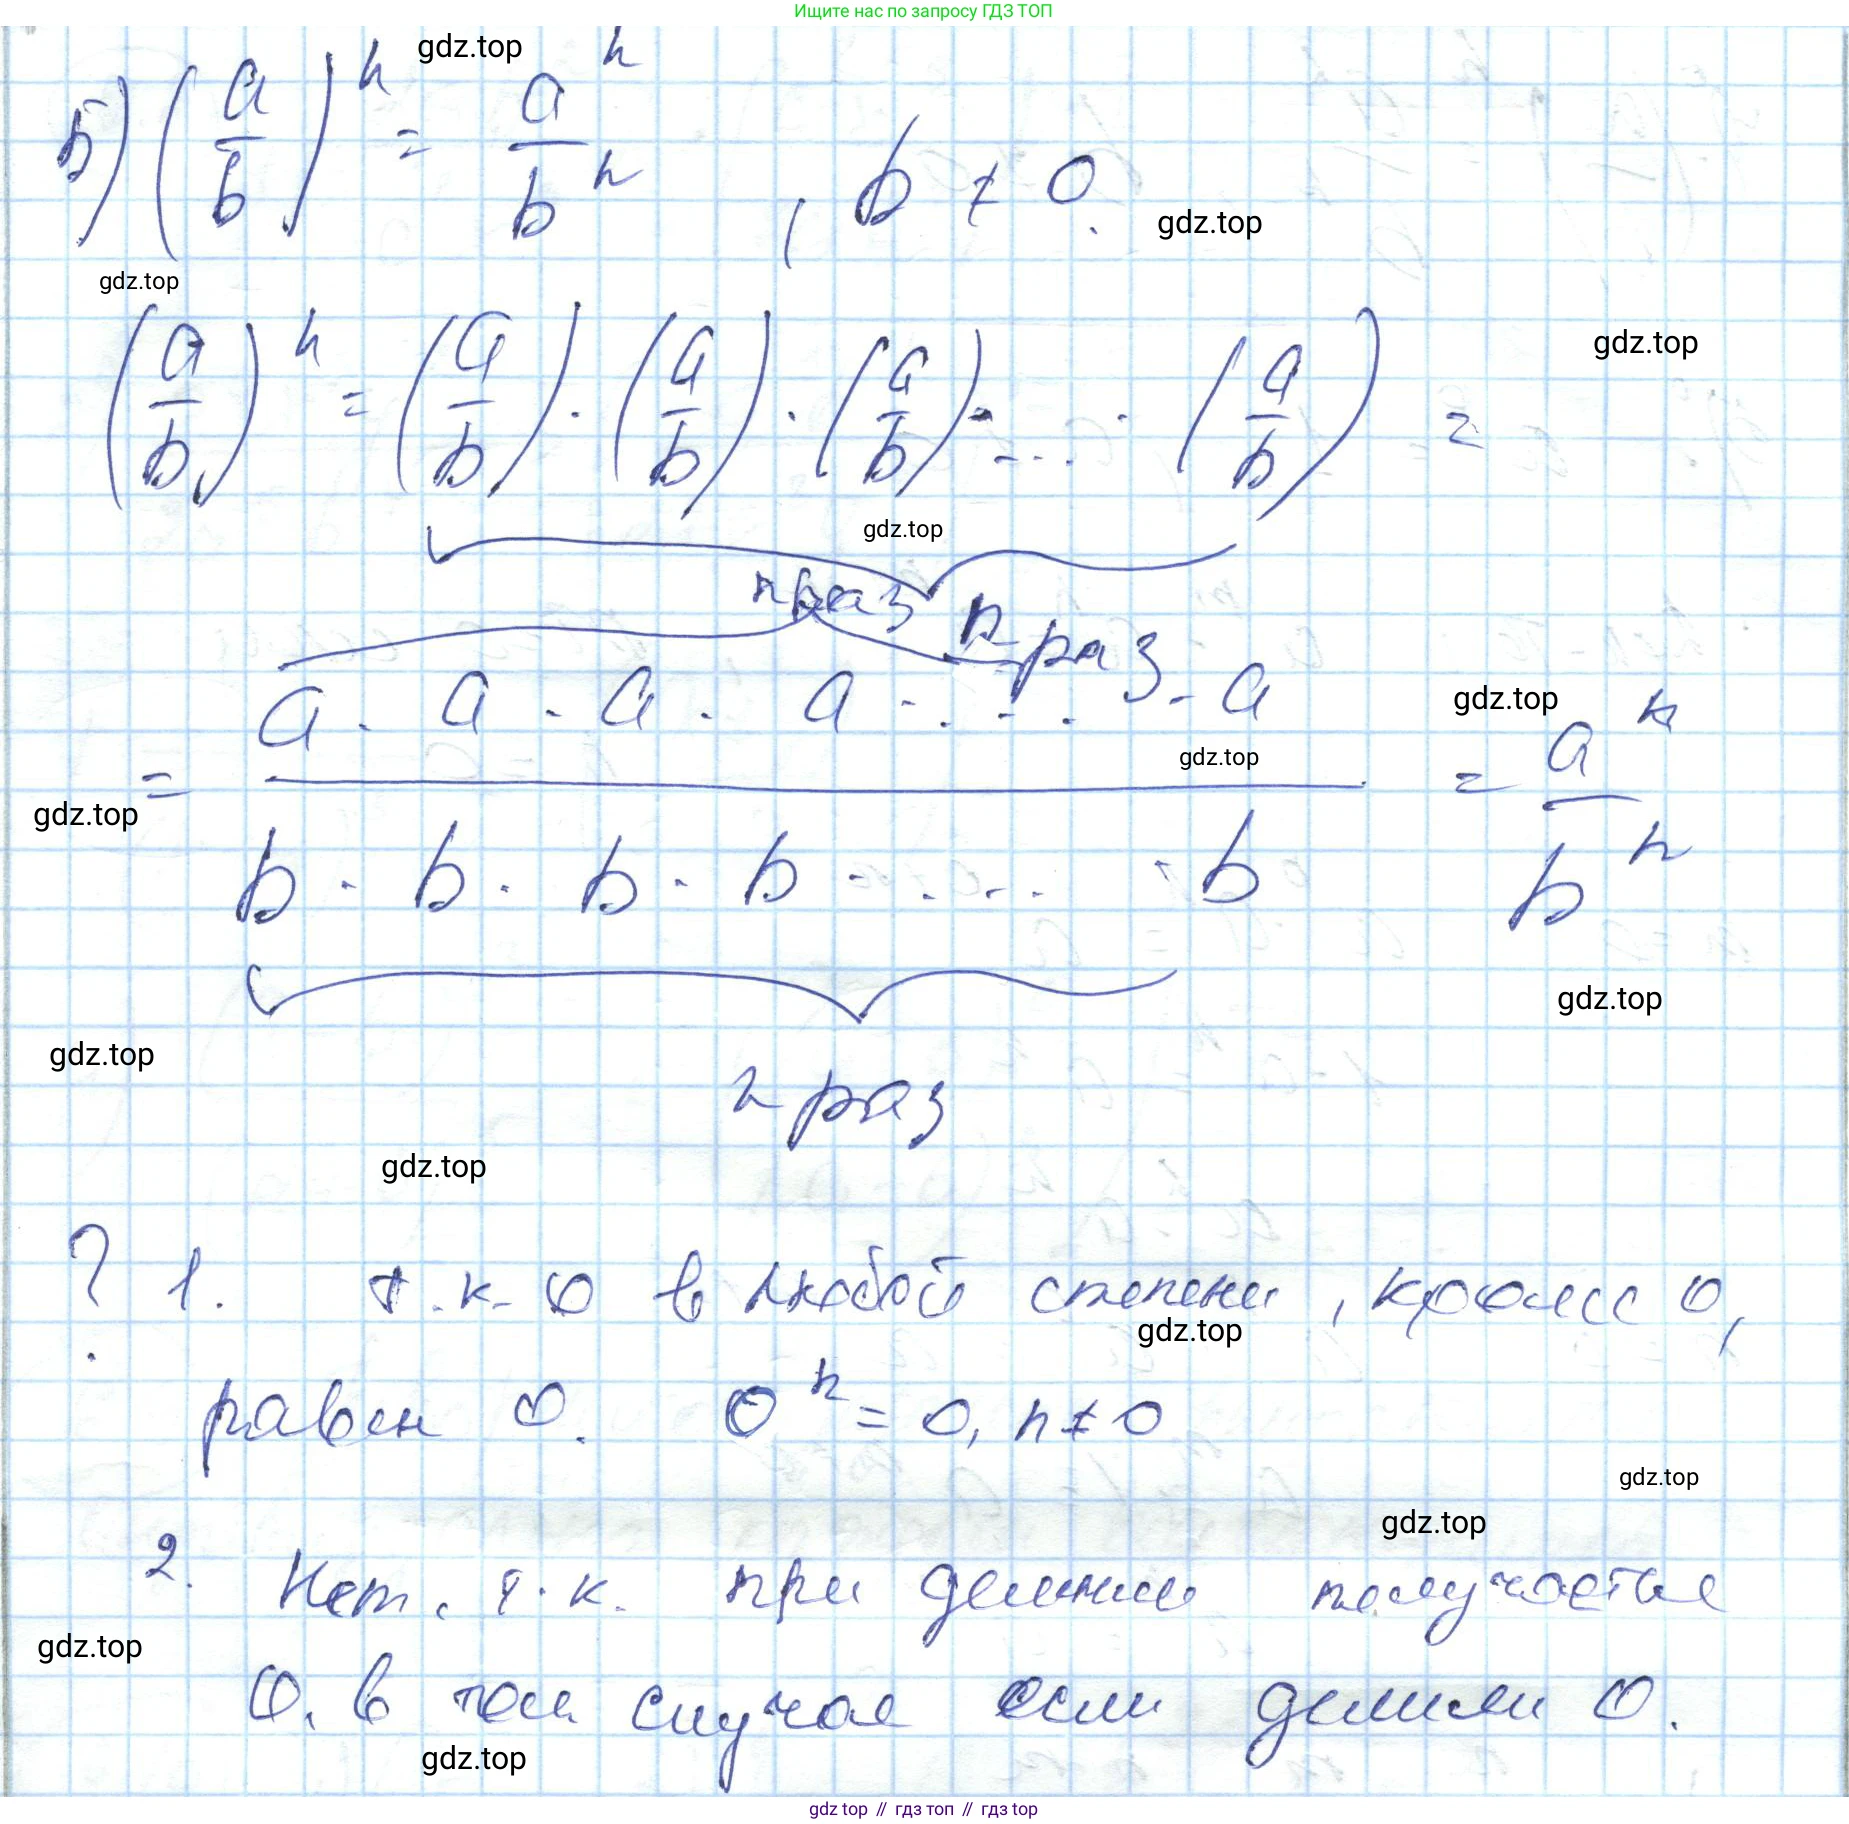 Ищите нас по запросу ГДЗ ТОП
gdz.top
5) (a/b)^n = a^n/b^n , b ≠ 0.
gdz.top
gdz.top
(a/b)^n = (a/b) · (a/b) · (a/b) · ... · (a/b) =
gdz.top
gdz.top
n раз
n раз
= a · a · a · a · ... · a / b · b · b · b · ... · b = a^n/b^n
gdz.top
gdz.top
gdz.top
gdz.top
gdz.top
n раз
gdz.top
? 1. т.к. 0 в любой степени, кроме 0,
gdz.top
равен 0. 0^n = 0, n ≠ 0
gdz.top
gdz.top
2. Нет, т.к. при делении получается
gdz.top
0, в том случае если делили 0.
gdz.top
gdz top // гдз топ // гдз top